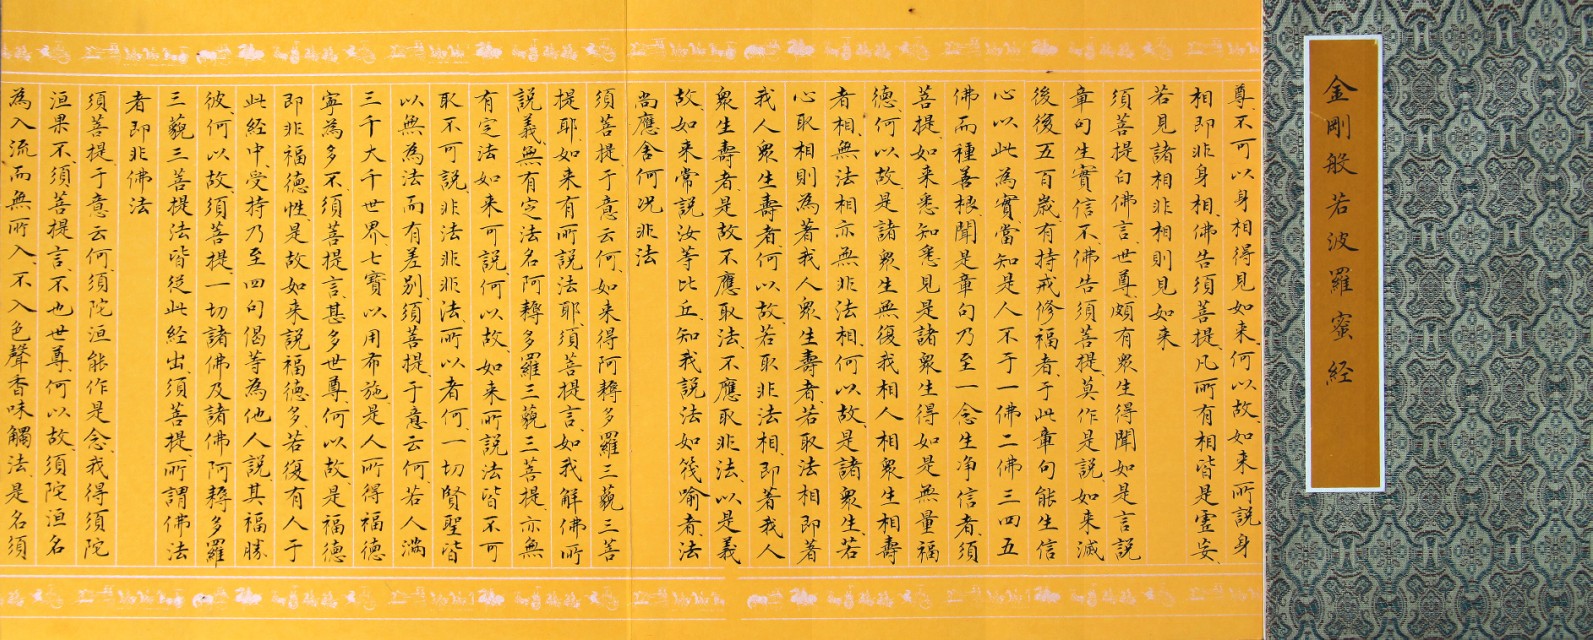 金剛般若波羅蜜经
尊、不可以身相得見如来、何以故、如来所説身
相即非身相、佛告須菩提、凡所有相皆是虚妄、
若見諸相非相則見如来
須菩提白佛言、世尊、頗有衆生得聞如是言説
章句生實信不、佛告須菩提、莫作是説、如来滅
後後五百歲、有持戒修福者、于此章句能生信
心以此為實、當知是人不于一佛二佛三四五
佛而種善根、聞是章句乃至一念生净信者、須
菩提、如来悉知悉見是諸衆生得如是無量福
德、何以故、是諸衆生無復我相人相衆生相壽
者相、無法相亦無非法相、何以故、是諸衆生、若
心取相則為著我人衆生壽者、若取法相即著
我人衆生壽者、何以故、若取非法相、即著我人
衆生壽者、是故不應取法、不應取非法、以是義
故、如来常説汝等比丘、知我説法如筏喻者、法
尚應舍何况非法
須菩提、于意云何、如来得阿耨多羅三藐三菩
提耶、如来有所説法耶、須菩提言、如我解佛所
説義、無有定法名阿耨多羅三藐三菩提、亦無
有定法如来可説、何以故、如来所説法皆不可
取不可説、非法非非法、所以者何、一切賢聖皆
以無為法而有差别、須菩提、于意云何、若人满
三千大千世界、七寶以用布施、是人所得福德
寧為多不、須菩提言、甚多世尊、何以故、是福德
即非福德性、是故如来説福德多、若復有人于
此經中、受持乃至四句偈等為他人説、其福勝
彼、何以故、須菩提、一切諸佛及諸佛阿耨多羅
三藐三菩提法皆從此經出、須菩提、所謂佛法
者即非佛法
須菩提、于意云何、須陀洹能作是念、我得須陀
洹果不、須菩提言、不也世尊、何以故、須陀洹名
為入流而無所入、不入色聲香味觸法、是名須